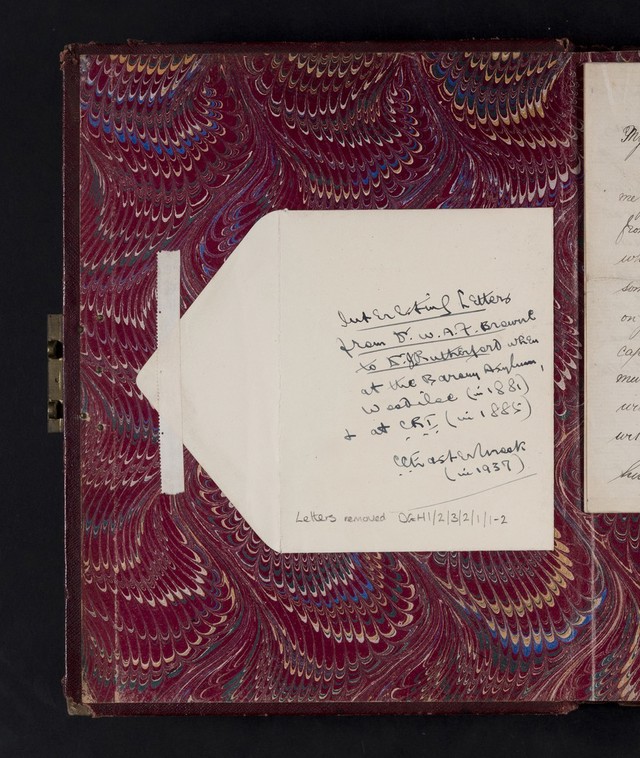 Interesting Letters
from Dr. W.A.F. Browne
to Dr. J Rutherford when
at the Barony Asylum,
Woodilee (in 1881)
& at C.R.I. (in 1885)
C C Easterbrook
(in 1937)
Letters removed DGH1/2/3/2/1/1-2
My
me
from
on